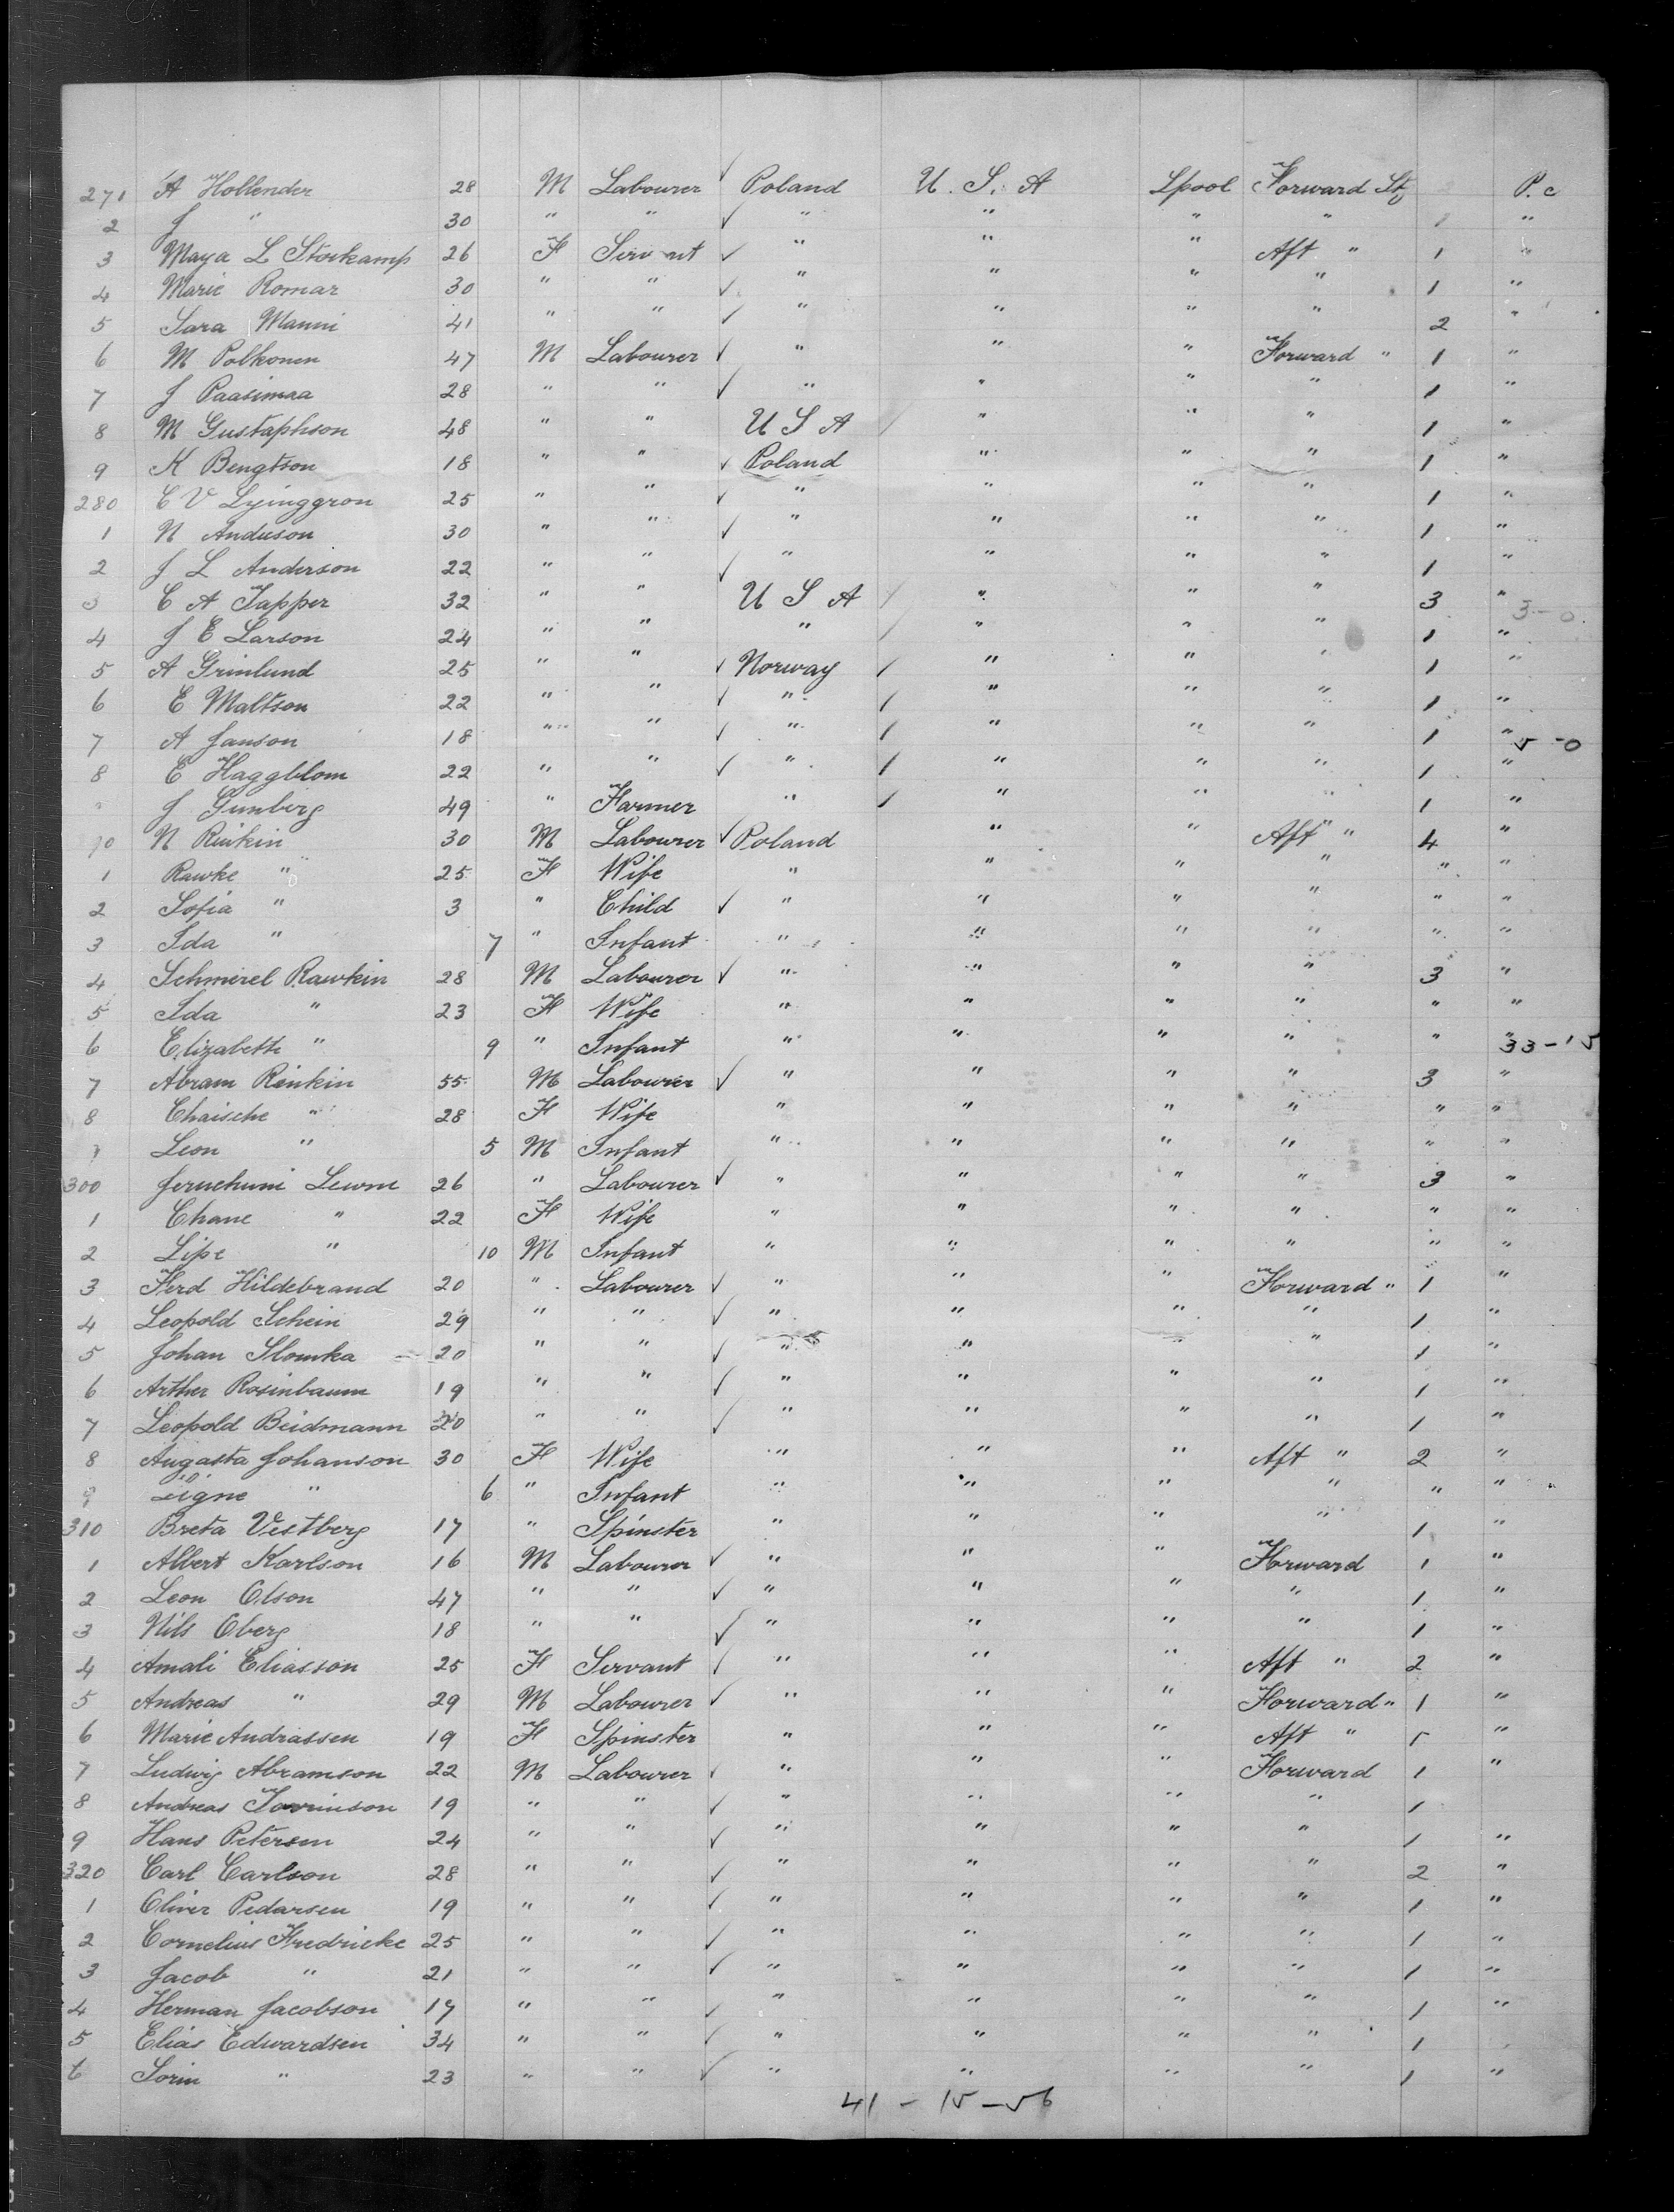 271 A Hollender 28 M Labourer ✓ Poland U. S. A Lpool Forward St P. c
2 J " 30 " " ✓ " " " " 1 "
3 Maya L Storkamp 26 F Servant ✓ " " " Aft " 1 "
4 Marie Romar 30 " " ✓ " " " " 1 "
5 Sara Manni 41 " " ✓ " " " " 2 "
6 M Polkonen 47 M Labourer ✓ " " " Forward " 1 "
7 J Paasimaa 28 " " ✓ " " " " 1 "
8 M Gustaphson 48 " " U S A / " " " 1 "
9 K Bengtson 18 " " ✓ Poland " " " 1 "
280 C V Lyinggron 25 " " ✓ " " " " 1 "
1 N Anduson 30 " " ✓ " " " " 1 "
2 J L Anderson 22 " " ✓ " " " " 1 "
3 C A Tapper 32 " " U S A / " " " 3 " 3-0
4 J E Larson 24 " " " / " " " 1 "
5 A Grinlund 25 " " ✓ Norway / " " " 1 "
6 E Maltson 22 " " ✓ " / " " " 1 "
7 A Janson 18 " " ✓ " / " " " 1 " 5-0
8 E Haggblom 22 " " ✓ " / " " " 1 "
J Gunberg 49 " Farmer " / " " " 1 "
90 N Rinkin 30 M Labourer ✓ Poland " " Aft " 4 "
1 Rawke " 25 F Wife " " " " " "
2 Sofia " 3 " Child ✓ " " " " " "
3 Ida " 7 " Infant " " " " " "
4 Schmerel Rawkin 28 M Labourer ✓ " " " " 3 "
5 Ida " 23 F Wife " " " " " "
6 Elizabeth " 9 " Infant " " " " " " 33-15
7 Abram Rinkin 55 M Labourer ✓ " " " " 3 "
8 Chaische " 28 F Wife " " " " " "
9 Leon " 5 M Infant " " " " " "
300 Jeruchuni Lewne 26 " Labourer ✓ " " " " 3 "
1 Chane " 22 F Wife " " " " " "
2 Lipe " 10 M Infant " " " " " "
3 Ferd Hildebrand 20 " Labourer ✓ " " " Forward " 1 "
4 Leopold Schein 29 " " ✓ " " " " 1 "
5 Johan Slomka 20 " " ✓ " " " " 1 "
6 Arther Rosinbaum 19 " " ✓ " " " " 1 "
7 Leopold Beidmann 20 " " ✓ " " " " 1 "
8 Augasta Johanson 30 F Wife " " " Aft " 2 "
9 Signe " 6 " Infant " " " " " "
310 Breta Vestberg 17 " Spinster " " " " 1 "
1 Albert Karlson 16 M Labourer ✓ " " " Forward 1 "
2 Leon Olson 47 " " ✓ " " " " 1 "
3 Nils Oberg 18 " " ✓ " " " " 1 "
4 Amali Eliasson 25 F Servant ✓ " " " Aft " 2 "
5 Andreas " 29 M Labourer ✓ " " " Forward " 1 "
6 Marie Andrassen 19 F Spinster " " " Aft " 1 "
7 Ludwig Abramson 22 M Labourer ✓ " " " Forward 1 "
8 Andreas 19 " " ✓ " " " " 1
9 Hans Petersen 24 " " ✓ " " " " 1 "
320 Carl Carlson 28 " " ✓ " " " " 2 "
1 Oliver Pedarsen 19 " " ✓ " " " " 1 "
2 Cornelius Fredricke 25 " " ✓ " " " " 1 "
3 Jacob " 21 " " ✓ " " " " 1 "
4 Herman Jacobson 17 " " ✓ " " " " 1 "
5 Elias Edwardsen 34 " " ✓ " " " " 1
6 Sorin " 23 " " ✓ " " " " 1 "
41 - 15 - 56